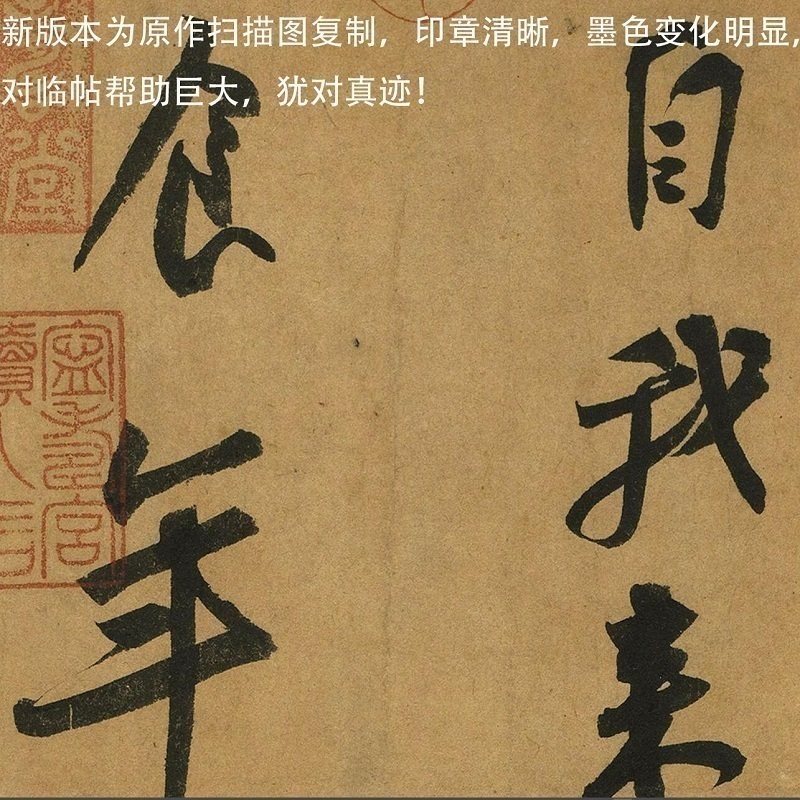 新版本为原作扫描图复制，印章清晰，墨色变化明显，
对临帖帮助巨大，犹对真迹！
自我来
食年